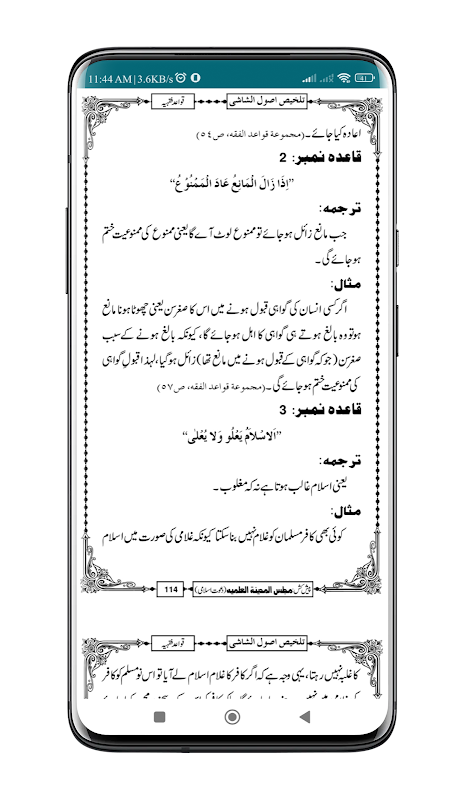 11:44 AM | 3.6KB/s
61
تلخیص اصول الشاشی
قواعد فقہیہ
اعادہ کیا جائے۔ (مجموعة قواعد الفقه، ص٥٤)
قاعدہ نمبر: 2
”اِذَا زَالَ الْمَانِعُ عَادَ الْمَمْنُوْعُ“
ترجمہ:
جب مانع زائل ہو جائے تو ممنوع لوٹ آے گا یعنی ممنوع کی ممنوعیت ختم
ہو جائے گی۔
مثال:
اگر کسی انسان کی گواہی قبول ہونے میں اس کا صغرسن یعنی چھوٹا ہونا مانع
ہو تو وہ بالغ ہوتے ہی گواہی کا اہل ہو جائے گا، کیونکہ بالغ ہونے کے سبب
صغرسن (جو کہ گواہی کے قبول ہونے میں مانع تھا) زائل ہو گیا، لہذا قبول گواہی
کی ممنوعیت ختم ہو جائے گی۔ (مجموعة قواعد الفقه، ص٥٧)
قاعدہ نمبر: 3
”اَلاسْلاَمُ يَعْلُو وَلا يُعْلٰى“
ترجمہ:
یعنی اسلام غالب ہوتا ہے نہ کہ مغلوب۔
مثال:
کوئی بھی کافر مسلمان کو غلام نہیں بنا سکتا کیونکہ غلامی کی صورت میں اسلام
پیش کش مجلس المدینۃ العلمیہ (دعوت اسلامی)
114
تلخیص اصول الشاشی
قواعد فقہیہ
کا غلبہ نہیں رہتا، یہی وجہ ہے کہ اگر کافر کا غلام اسلام لے آیا تو اس نو مسلم کو کافر